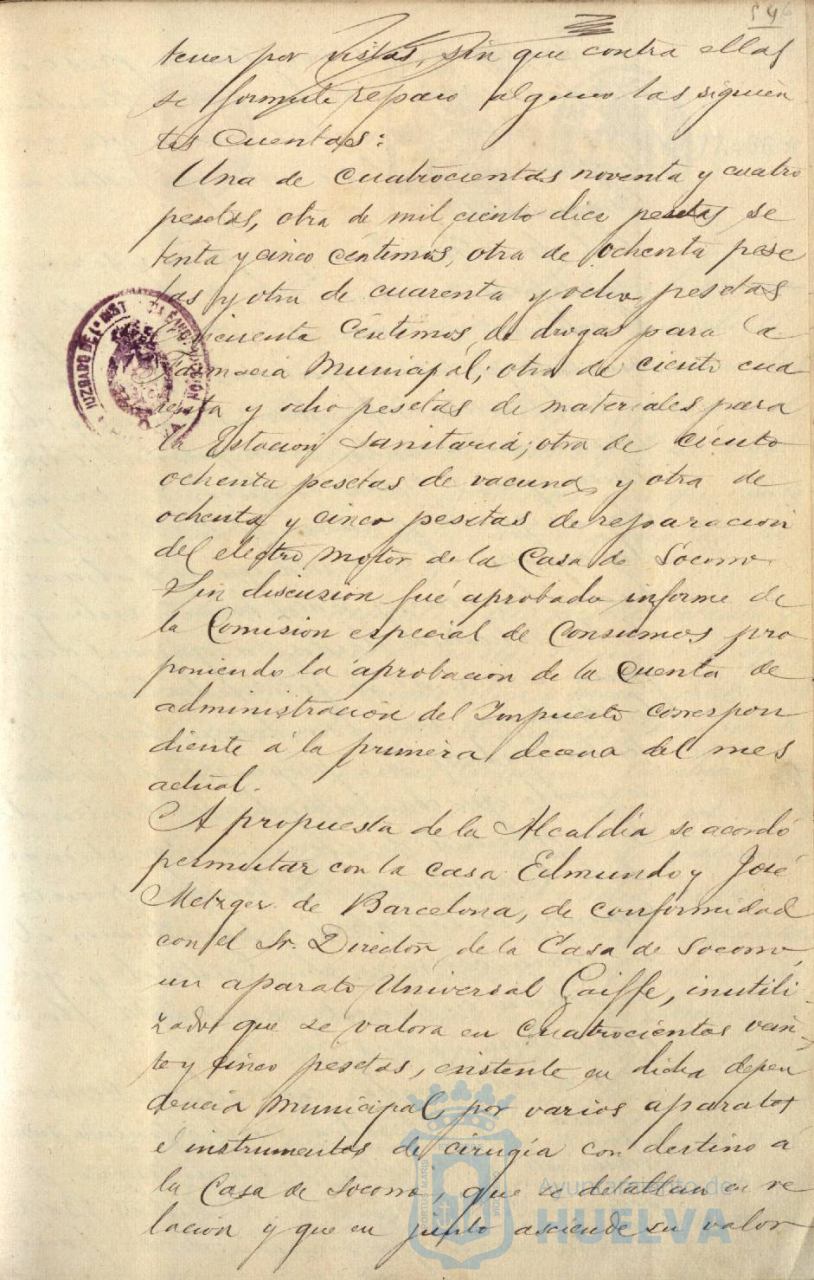 546
tener por vistas, sin que contra ellas
se formule reparo alguno las siguien
tes Cuentas:
Una de cuatrocientas noventa y cuatro
pesetas, otra de mil ciento diez pesetas, se
tenta y cinco céntimos, otra de ochenta pese
tas y otra de cuarenta y ocho pesetas
cincuenta céntimos, de drogas para la
Farmacia Municipal; otra de ciento cua
renta y ocho pesetas de materiales para
la Estación Sanitaria; otra de ciento
ochenta pesetas de vacuna, y otra de
ochenta y cinco pesetas de reparación
del electro motor de la Casa de Socorro.
Sin discusión fué aprobado informe de
la Comisión especial de Consumos pro
poniendo la aprobación de la Cuenta de
administración del Impuesto correspon
diente á la primera decena del mes
actual.
A propuesta de la Alcaldía se acordó
permutar con la casa Edmundo y José
Metzger de Barcelona, de conformidad
con el Sr. Director de la Casa de Socorro,
un aparato Universal Gaiffe, inutili
zado que se valora en cuatrocientas vein
te y cinco pesetas, existente en dicha depen
dencia Municipal, por varios aparatos
é instrumentos de cirugía con destino á
la Casa de Socorro, que se detallan en re
lación y que en junto asciende su valor
JUZGADO DE 1ª INST
Ayuntamiento de
HUELVA